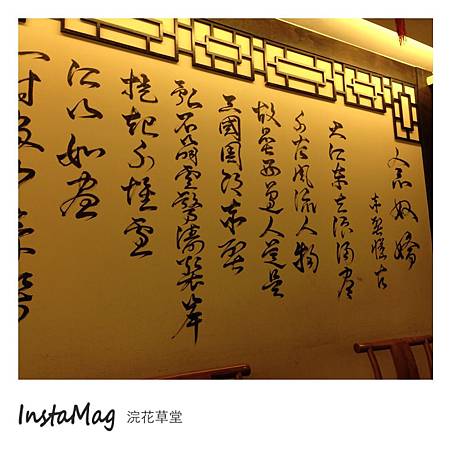 念奴嬌
赤壁懷古
大江東去浪淘盡
千古風流人物
故壘西邊人道是
三國周郎赤壁
亂石崩雲驚濤裂岸
捲起千堆雪
江山如畫
一時多少豪傑
InstaMag 浣花草堂